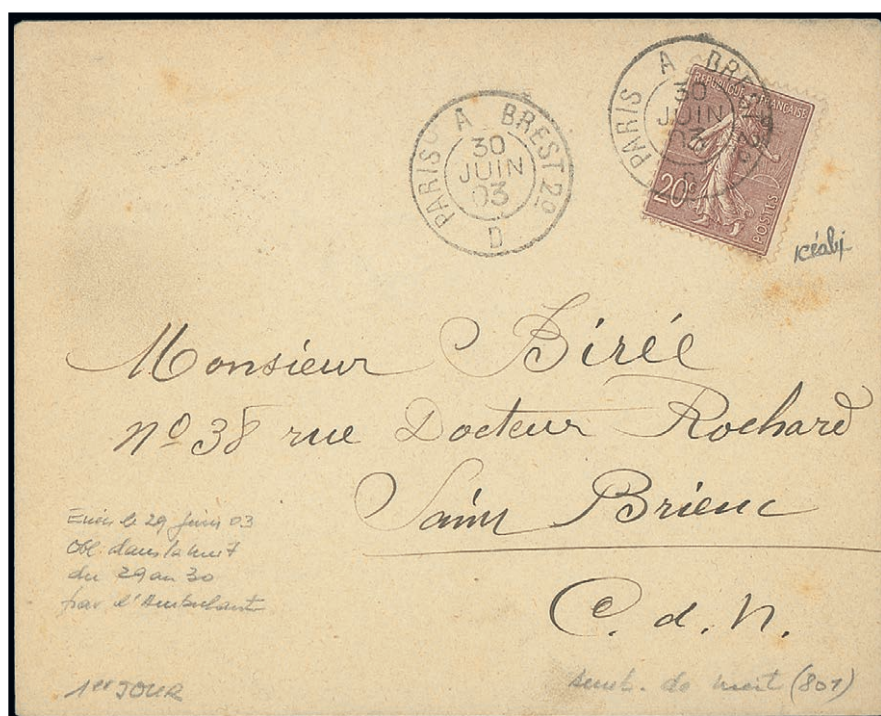 PARIS A BREST 2º
30
JUIN
03
D
PARIS A BREST 2º
30
JUIN
03
D
REPUBLIQUE FRANÇAISE
20c
POSTES
Monsieur Birée
Nº 38 rue Docteur Rochard
Saint Brieuc
C. d. N.
Emis le 29 juin 03
Obl dans la nuit
du 29 au 30
par l'Ambulant
1er JOUR
de nuit (801)